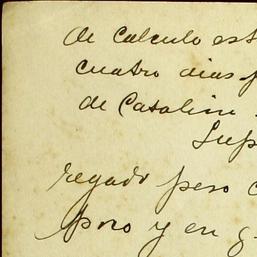 de calculo est
cuatro dias p
de Catalina
Sup
regado pero c
pero y en g